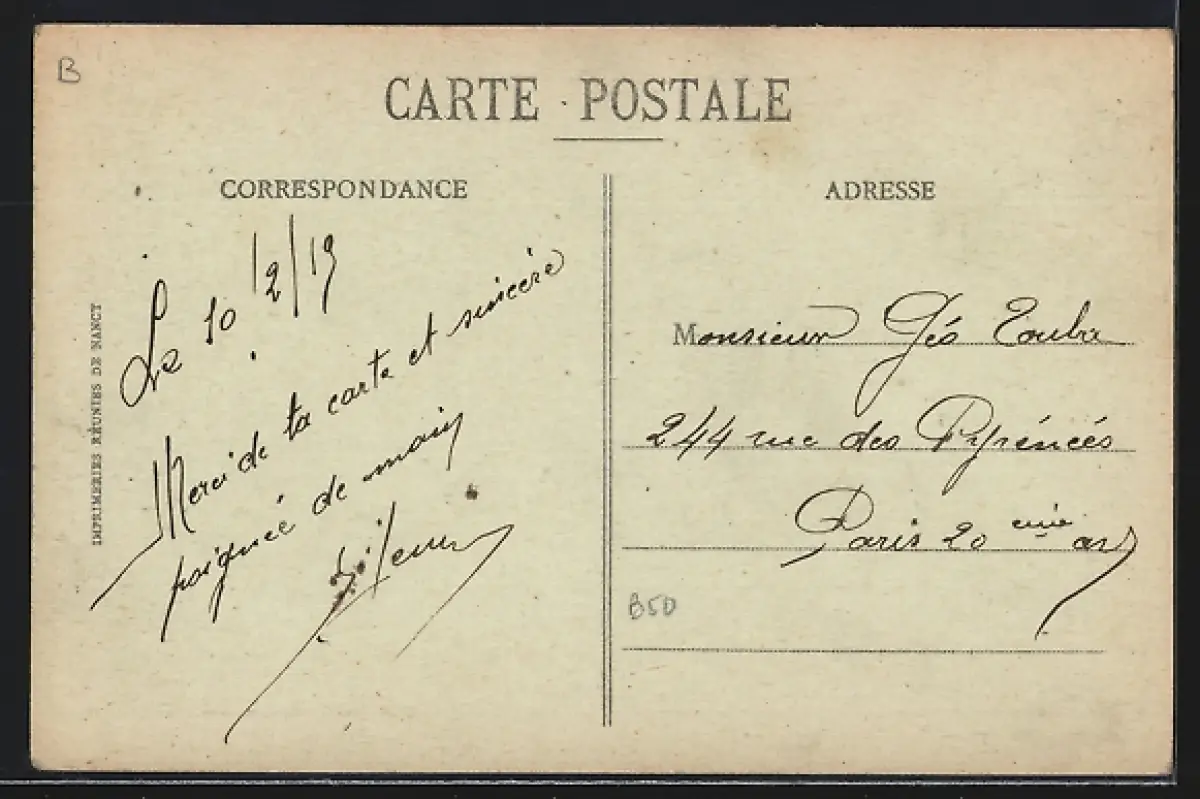 B
CARTE POSTALE
CORRESPONDANCE
Le 10/2/19
Merci de ta carte et sincère
poignée de main
IMPRIMERIES RÉUNIES DE NANCY
ADRESSE
Monsieur Géo
244 rue des Pyrénées
Paris 20 eme arr
B50